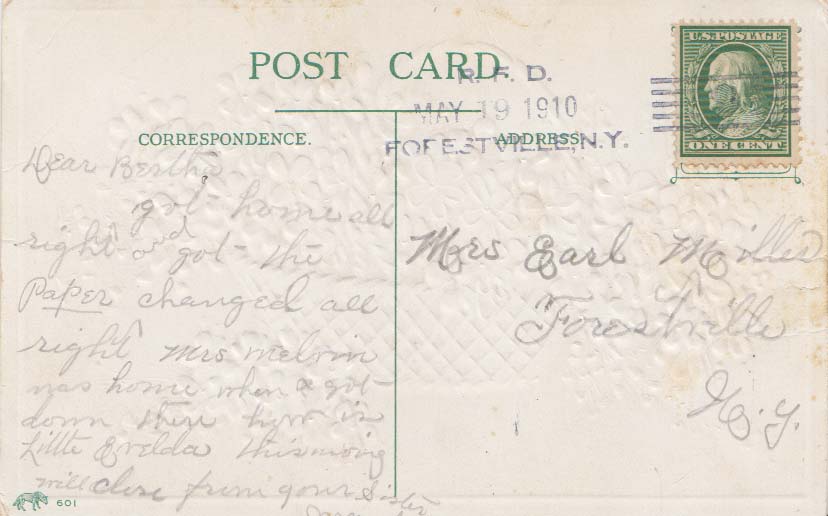 POST CARD
R. F. D.
MAY 19 1910
FORESTVILLE, N.Y.
U.S. POSTAGE
ONE CENT
CORRESPONDENCE.
ADDRESS.
Dear Bertha
got home all
right and got the
Paper changed all
right Mrs Melvin
was home when I got
down there how is
Little Evelda this
will close from your sister
Mrs Earl Mills
Forestville
N. Y.
601